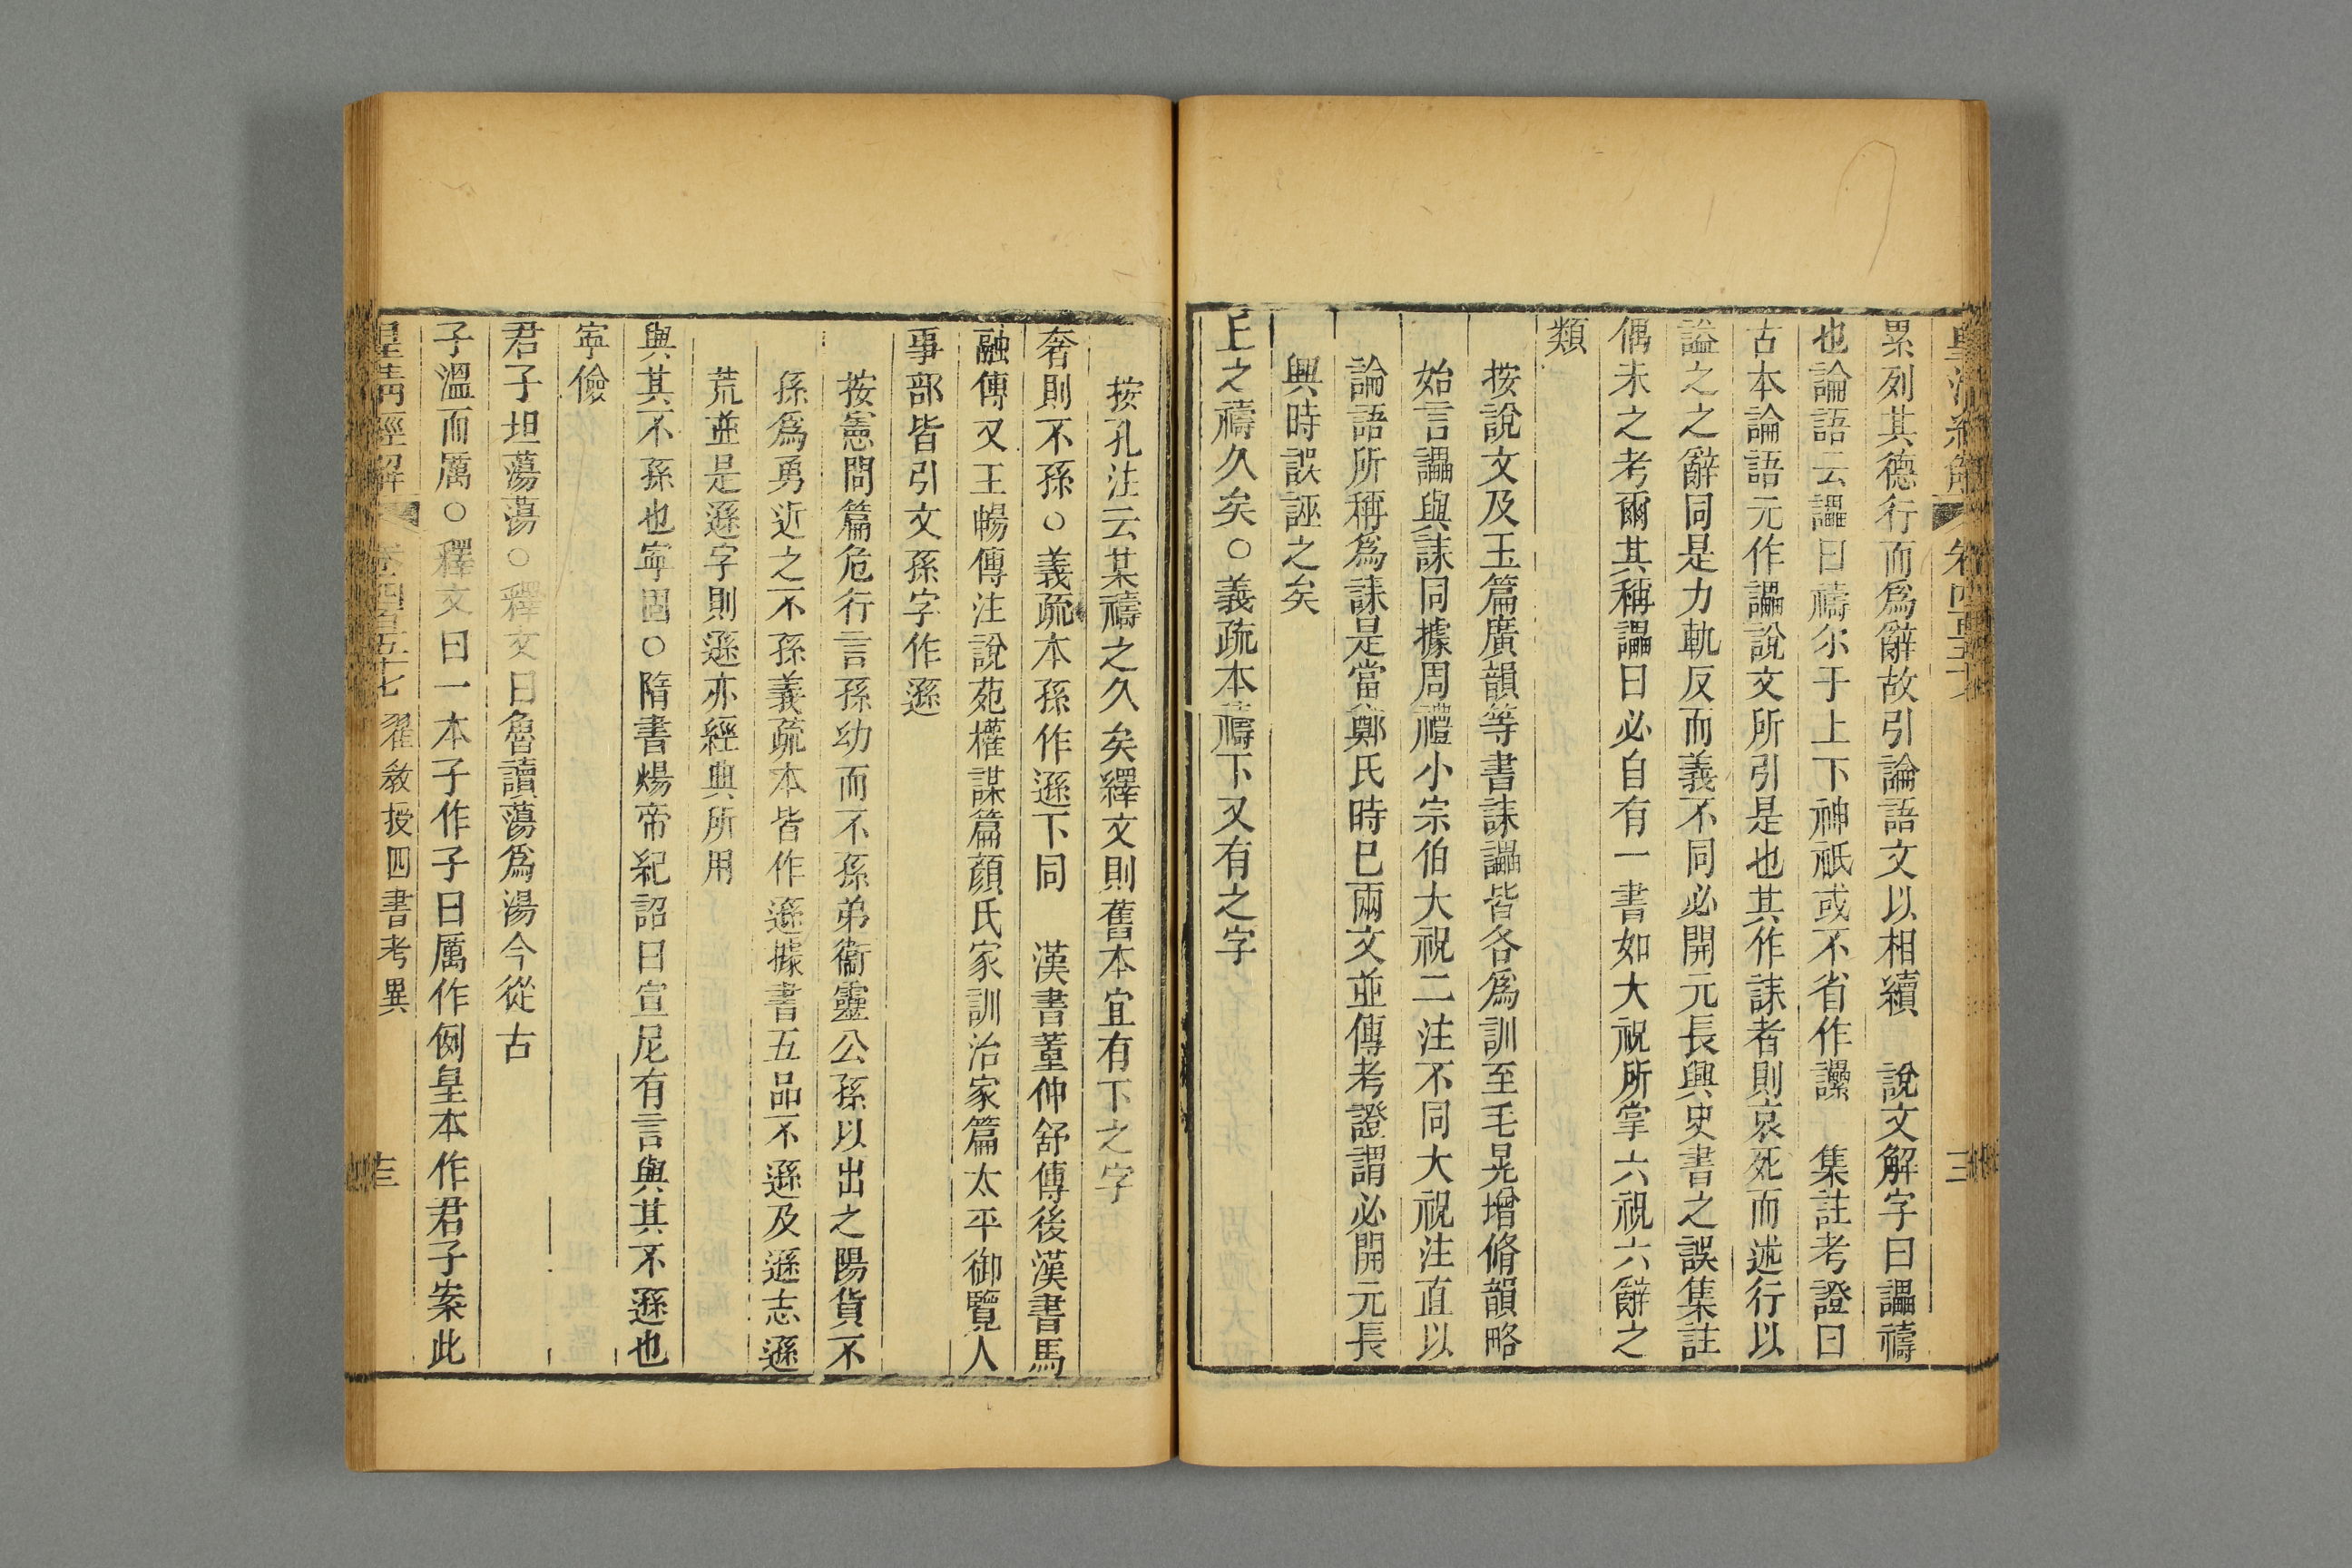 皇清經解 卷四百五十七 三
累列其德行而爲辭故引論語文以相續 說文解字曰讄禱
也論語云讄曰禱尒于上下神祇或不省作讄 集註考證曰
古本論語元作讄說文所引是也其作誄者則哀死而述行以
謚之之辭同是力軌反而義不同必開元長興史書之誤集註
偶未之考爾其稱讄曰必自有一書如大祝所掌六祝六辭之
類
按說文及玉篇廣韻等書誄讄皆各爲訓至毛晃增脩韻略
始言讄與誄同據周禮小宗伯大祝二注不同大祝注直以
論語所稱爲誄是當鄭氏時巳兩文並傳考證謂必開元長
興時誤誣之矣
上之禱久矣○義疏本禱下又有之字
按孔注云某禱之久矣繹文則舊本宜有下之字
奢則不孫○義疏本孫作遜下同 漢書董仲舒傳後漢書馬
融傳又王暢傳注說苑權謀篇顏氏家訓治家篇太平御覽人
事部皆引文孫字作遜
按憲問篇危行言孫幼而不孫弟衞靈公孫以出之陽貨不
孫爲勇近之不孫義疏本皆作遜據書五品不遜及遜志遜
荒並是遜字則遜亦經典所用
與其不孫也寧固○隋書煬帝紀詔曰宣尼有言與其不遜也
寧儉
君子坦蕩蕩○釋文曰魯讀蕩爲湯今從古
子溫而厲○釋文曰一本子作子曰厲作例皇本作君子案此
皇清經解 卷四百五十七 翟敎授四書考異 三